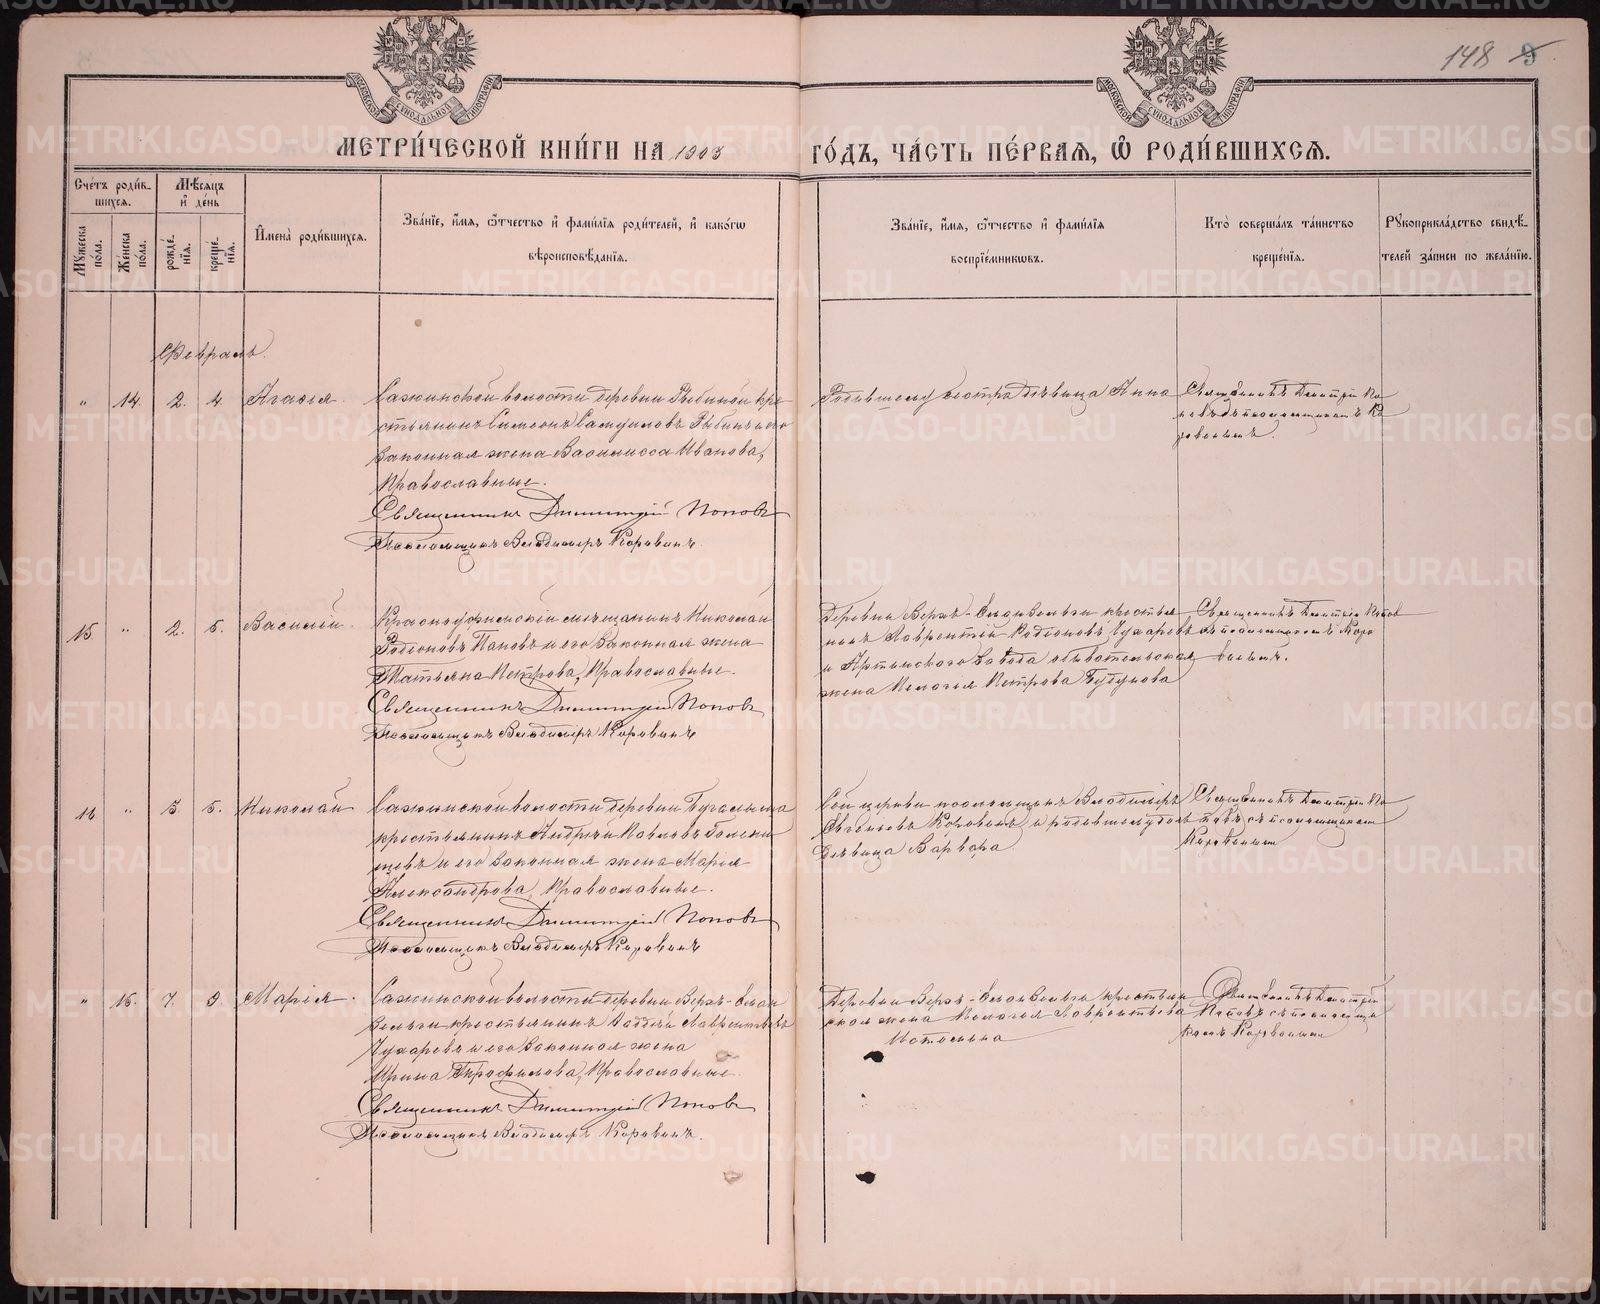 148
МОСКОВСКОЙ СѴНОДАЛЬНОЙ ТИПОГРАФІИ
МОСКОВСКОЙ СѴНОДАЛЬНОЙ ТИПОГРАФІИ
МЕТРИ́ЧЕСКОЙ КНИ́ГИ НА 1903 ГО́ДЪ, ЧА́СТЬ ПЕ́РВАѦ, Ѡ РОДИ́ВШИХСѦ.
Сче́тъ роди́в-
шихсѧ.
Мꙋжеска пола.
Же́нска по́ла.
Мѣ́сѧцъ
и҆ де́нь
рожде́-
нїѧ.
креще́-
нїѧ.
И҆мена̀ роди́вшихсѧ.
Зва́нїе, и҆́мѧ, ѻ҆́тчество и҆ фами́лїѧ роди́телей, и҆ како́гѡ
вѣроисповѣ́данїѧ.
Зва́нїе, и҆́мѧ, ѻ҆́тчество и҆ фами́лїѧ
воспрїе́мникѡвъ.
Кто̀ соверша́лъ та́инство
креще́нїѧ.
Рꙋкоприкла́дство свидѣ́-
телей за́писи по жела́нїю.
Февраль.
" 14 2. 4. Агафія. Сажинской волости деревни Рыбиной кре-
стьянинъ Симеонъ Самуиловъ Рыбинъ и его
законная жена Василисса Иванова,
Православные.
Священникъ Димитрій Поповъ
Псаломщикъ Владимиръ Коровинъ.
Родившему сестра девица Анна
Священникъ Димитрій По-
повъ съ псаломщикомъ Ко-
ровинымъ.
15 " 2. 5. Василій. Красноуфимскій мещанинъ Николай
Родіоновъ Пановъ и его законная жена
Татьяна Петрова, Православные.
Священникъ Димитрій Поповъ
Псаломщикъ Владимиръ Коровинъ
Деревни Верхъ- крестья-
нинъ Лаврентій Родіоновъ Чухаревъ
и Артинского завода обывательская
жена Пелагья Петрова
Священникъ Димитрій Попов
съ псаломщикомъ Коро
винымъ.
16 " 3. 5. Николай Сажинской волости деревни
крестьянинъ Андрей Павловъ
щевъ и его законная жена Марія
Александрова, Православные.
Священникъ Димитрій Поповъ
Псаломщикъ Владимиръ Коровинъ
Сей церкви псаломщикъ Владимиръ
Евгеньевъ Коровинъ и родившему
девица Варвара
Священникъ Димитрій По
повъ съ псаломщикомъ
Коровинымъ
" 15. 7. 9. Марія. Сажинской волости деревни Верхъ-
крестьянинъ Лаврентьевъ
Чухаревъ и его законная жена
Ирина Трофимова, Православные.
Священникъ Димитрій Поповъ
Псаломщикъ Владимиръ Коровинъ.
Деревни Верхъ- крестьян
ская жена Пелагья Лаврентьева
Священникъ Димитрій
Поповъ съ псаломщи
комъ Коровинымъ
METRIKI.GASO-URAL.RU